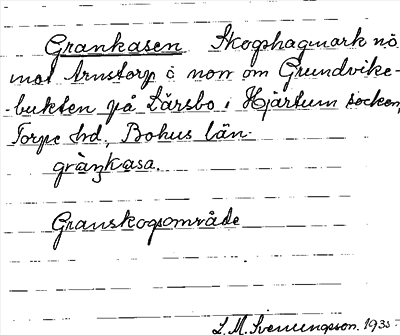 Grankasen Skogshagmark nö
mot Arnstorp o norr om Grundvike-
-bukten på Lärsbo i Hjärtum socken,
Torpe hd, Bohus län.
gràŋkasa.
Granskogsområde
L. M. Svenungsson. 1935.